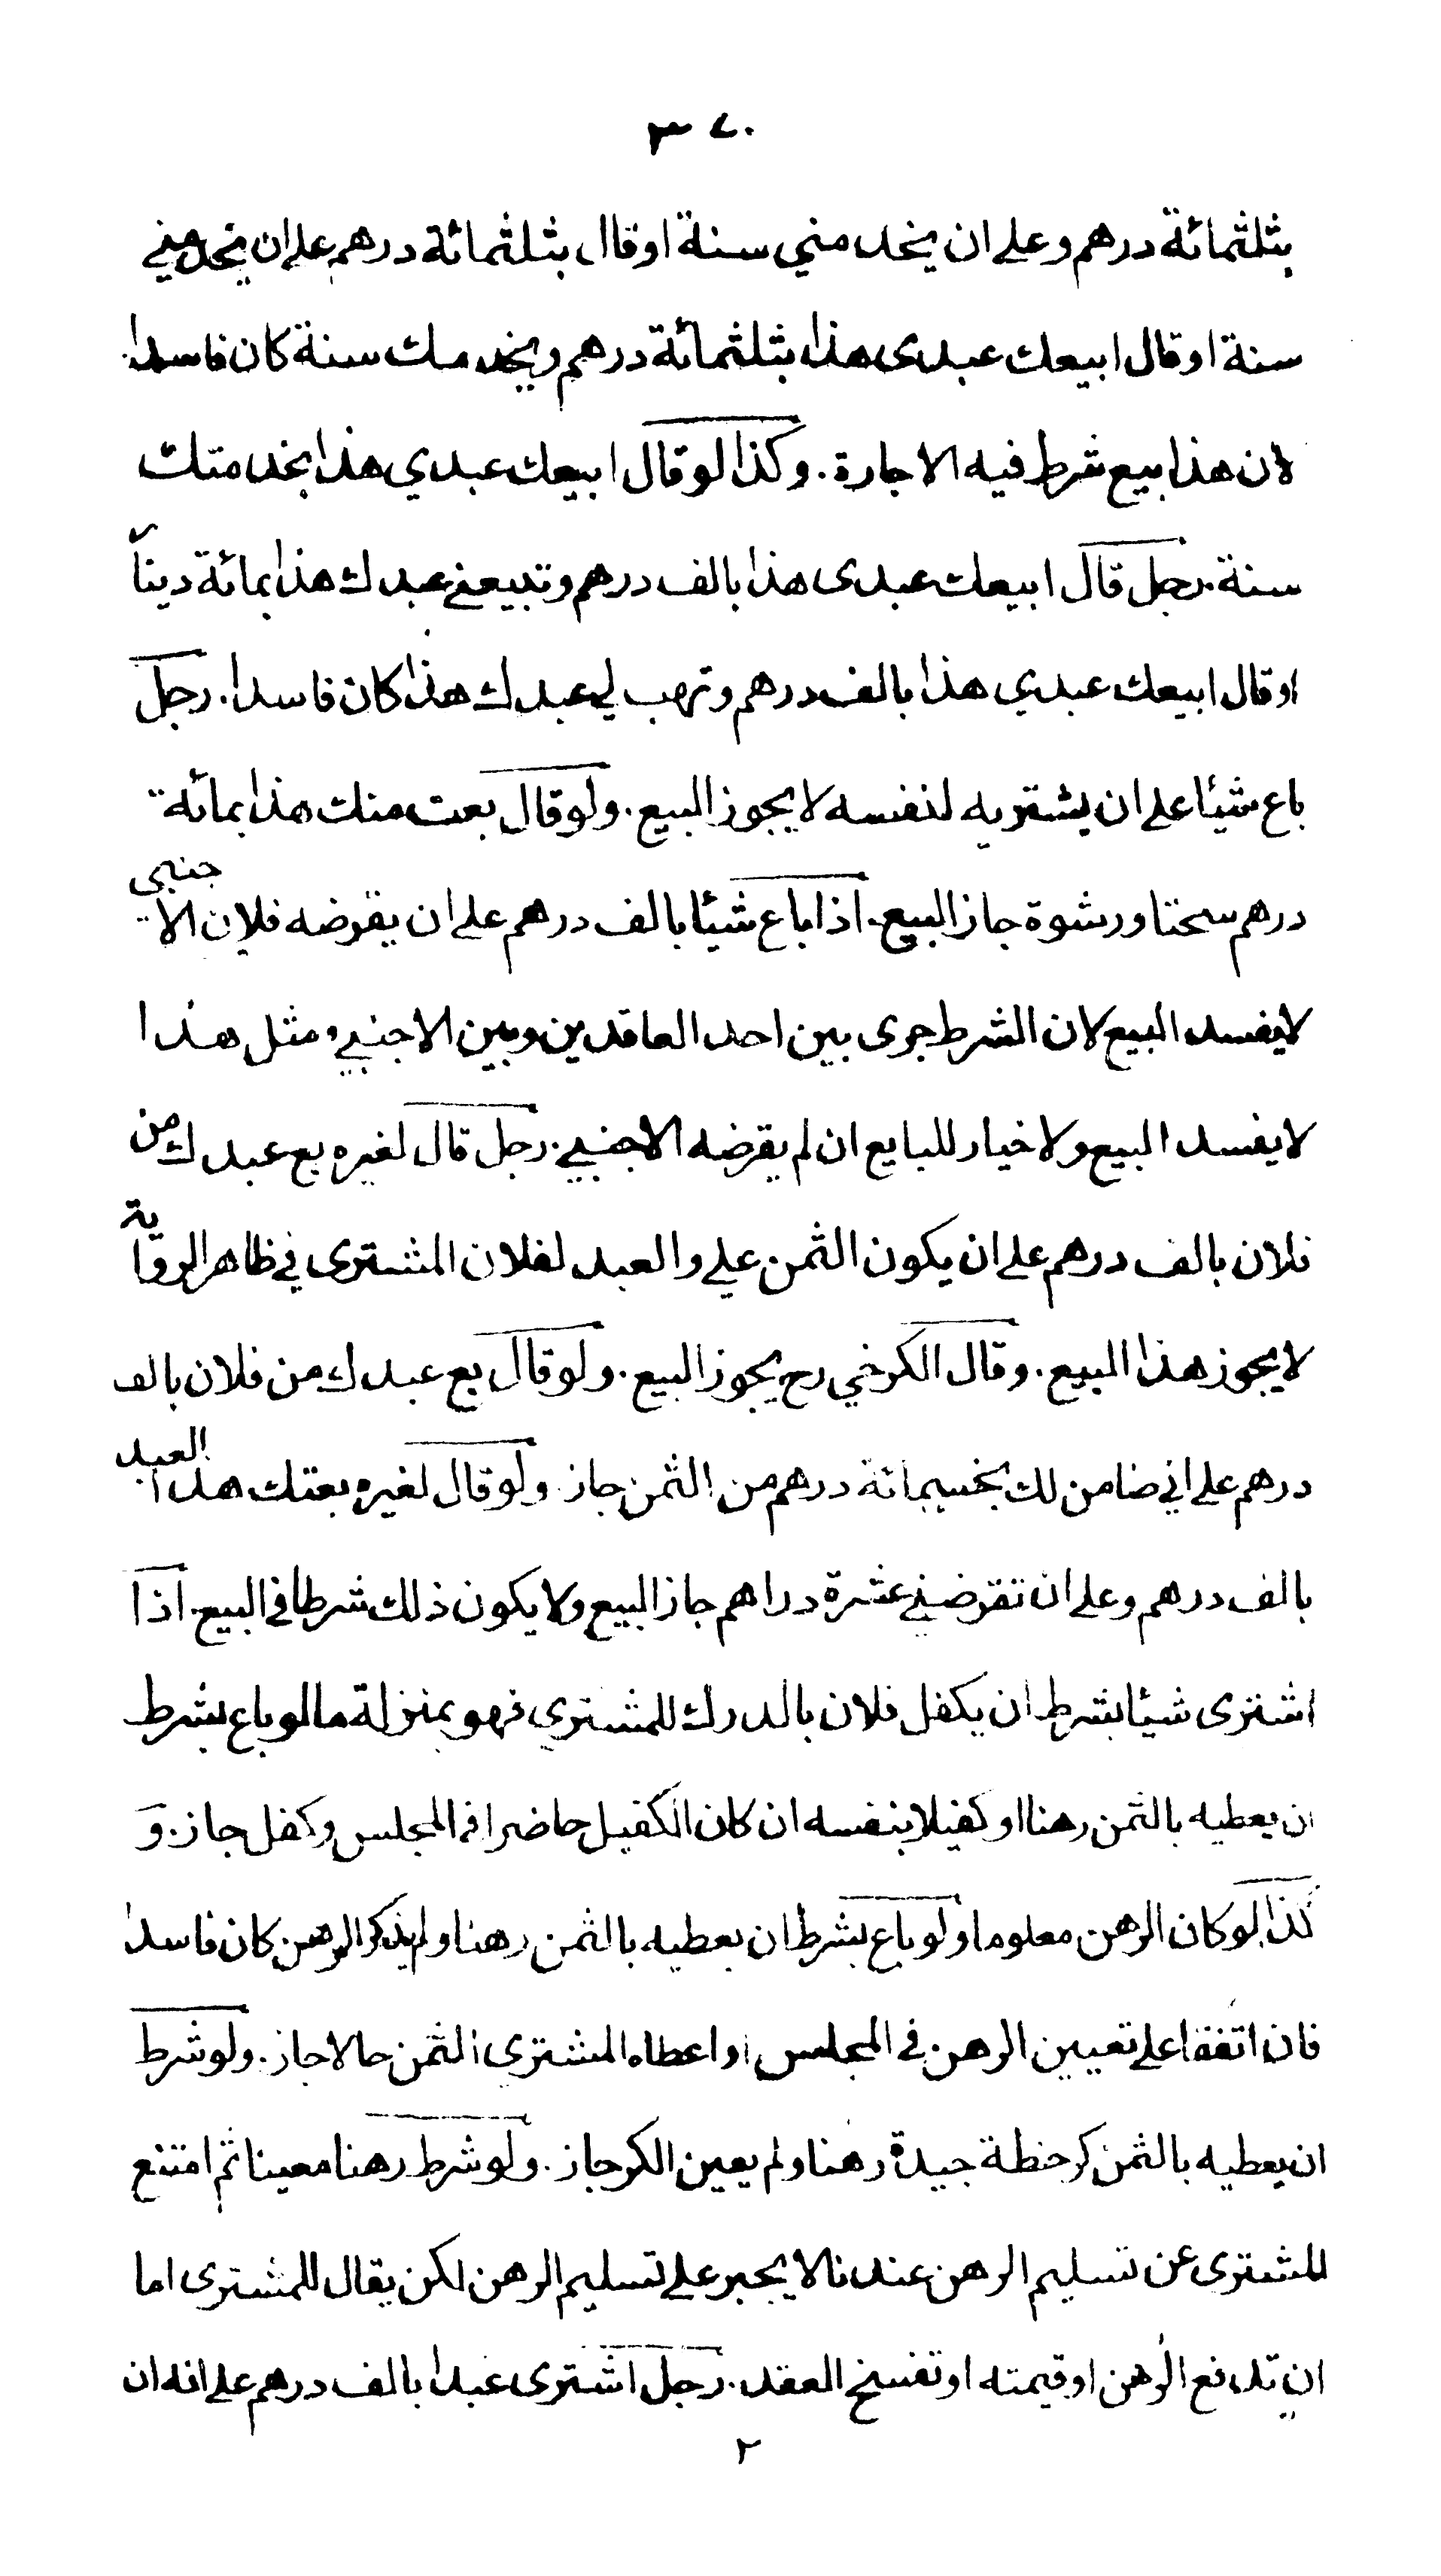 ٣٧٠
بثلثمائة درهم وعلى ان يخدمني سنة اوقال بثلثمائة درهم على ان يخدمني
سنة اوقال ابيعك عبدى هذا بثلثمائة درهم ويخدمك سنة كان فاسدا.
لان هذا بيع شرط فيه الاجارة. وكذا لوقال ابيعك عبدي هذا بخدمتك
سنة. رجل قال ابيعك عبدى هذا بالف درهم وتبيعني عبدك هذا بمائة دينار
اوقال ابيعك عبدي هذا بالف درهم وتهب لي عبدك هذا كان فاسدا. رجل
باع شيئا على ان يشتريه لنفسه لا يجوز البيع. ولوقال بعت منك هذا بمائة
درهم سحتا ورشوة جاز البيع. اذا باع شيئا بالف درهم على ان يقرضه فلان الاجنبي
لايفسد البيع لان الشرط جرى بين احد العاقدين وبين الاجنبي ومثل هذا
لا يفسد البيع ولا خيار للبايع ان لم يقرضه الاجنبي. رجل قال لغيره بع عبدك من
فلان بالف درهم على ان يكون الثمن علي والعبد لفلان المشترى في ظاهر الرواية
لا يجوز هذا البيع. وقال الكرخي رح يجوز البيع. ولوقال بع عبدك من فلان بالف
درهم على اني ضامن لك بخمسمائة درهم من الثمن جاز. ولوقال لغيره بعتك هذا العبد
بالف درهم وعلى ان تقرضني عشرة دراهم جاز البيع ولا يكون ذلك شرطا في البيع. اذا
اشترى شيئا بشرط ان يكفل فلان بالدرك للمشتري فهو بمنزلة مالو باع بشرط
ان يعطيه بالثمن رهنا او كفيلا بنفسه ان كان الكفيل حاضرا في المجلس وكفل جاز. و
كذا لوكان الرهن معلوما ولو باع بشرط ان يعطيه بالثمن رهنا ولم يذكر الرهن كان فاسدا
فان اتفقا على تعيين الرهن في المجلس او اعطاه المشتري الثمن حالا جاز. ولو شرط
ان يعطيه بالثمن كر حنطة جيدة رهنا ولم يعين الكر جاز. ولو شرط رهنا معينا ثم امتنع
المشترى عن تسليم الرهن عندنا لا يجبر على تسليم الرهن لكن يقال للمشترى اما
ان تدفع الرهن او قيمته او تفسخ العقد. رجل اشترى عبدا بالف درهم على انه ان
٢